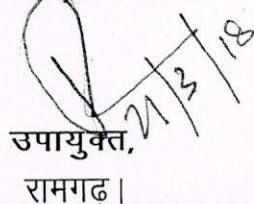 21/3/18
उपायुक्त,
रामगढ।